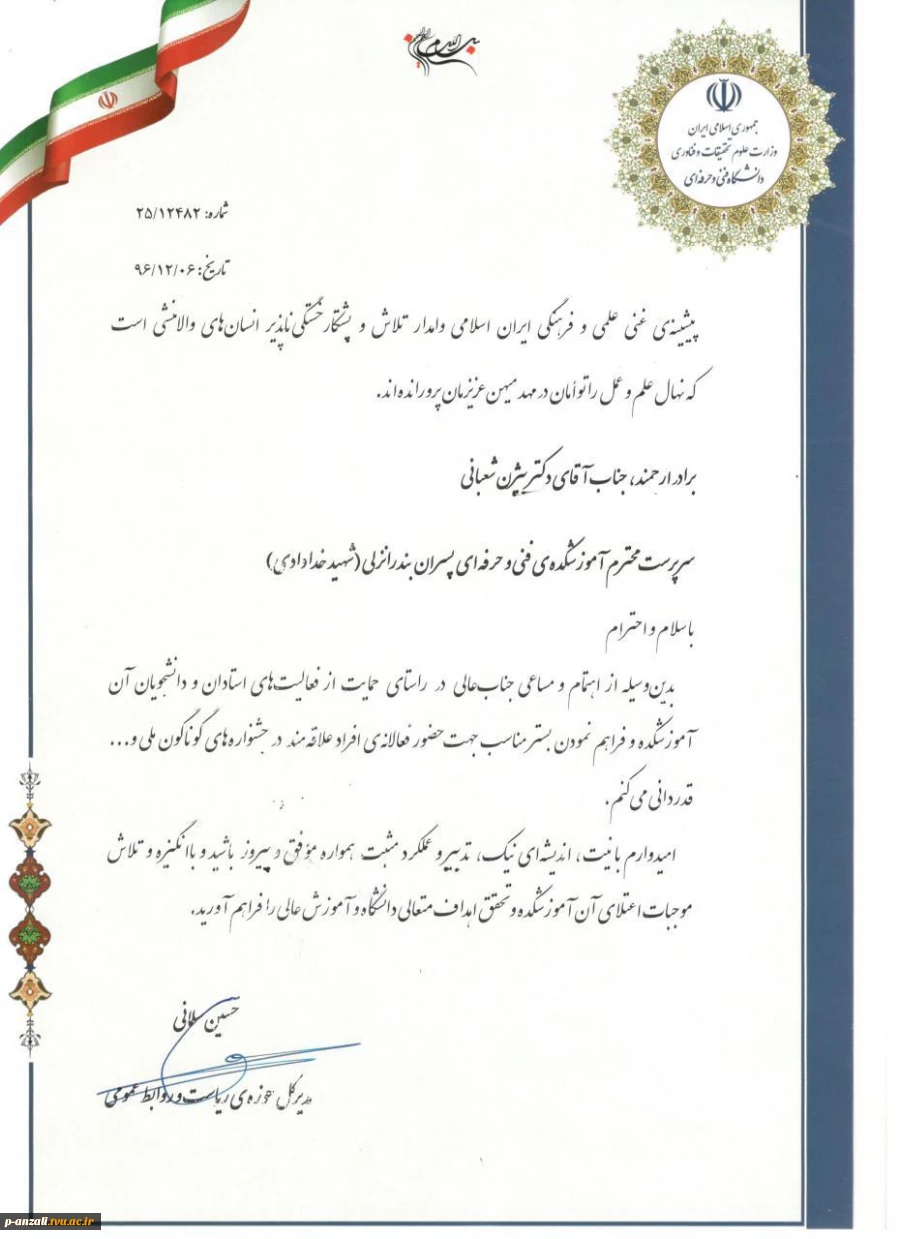 بسم الله الرحمن الرحیم
جمهوری اسلامی ایران
وزارت علوم تحقیقات و فناوری
دانشگاه فنی و حرفه‌ای
شماره: ۲۵/۱۲۴۸۲
تاریخ: ۹۶/۱۲/۰۶
پیشینه‌ی غنی علمی و فرهنگی ایران اسلامی وامدار تلاش و پشتکار خستگی‌ناپذیر انسان‌های والامنشی است
که نهال علم و عمل را توأمان در مهد میهن عزیزمان پرورانده‌اند.
برادر ارجمند، جناب آقای دکتر بیژن شعبانی
سرپرست محترم آموزشکده‌ی فنی و حرفه‌ای پسران بندرانزلی (شهید خدادادی)
با سلام و احترام
بدین‌وسیله از اهتمام و مساعی جناب‌عالی در راستای حمایت از فعالیت‌های استادان و دانشجویان آن
آموزشکده و فراهم نمودن بستر مناسب جهت حضور فعالانه‌ی افراد علاقه‌مند در جشنواره‌های گوناگون ملی و...
قدردانی می‌کنم.
امیدوارم با نیت، اندیشه‌ای نیک، تدبیر و عملکرد مثبت همواره مؤفق و پیروز باشید و با انگیزه و تلاش
موجبات اعتلای آن آموزشکده و تحقق اهداف متعالی دانشگاه و آموزش عالی را فراهم آورید.
حسین
مدیرکل حوزه‌ی ریاست و روابط عمومی
p-anzali.tvu.ac.ir